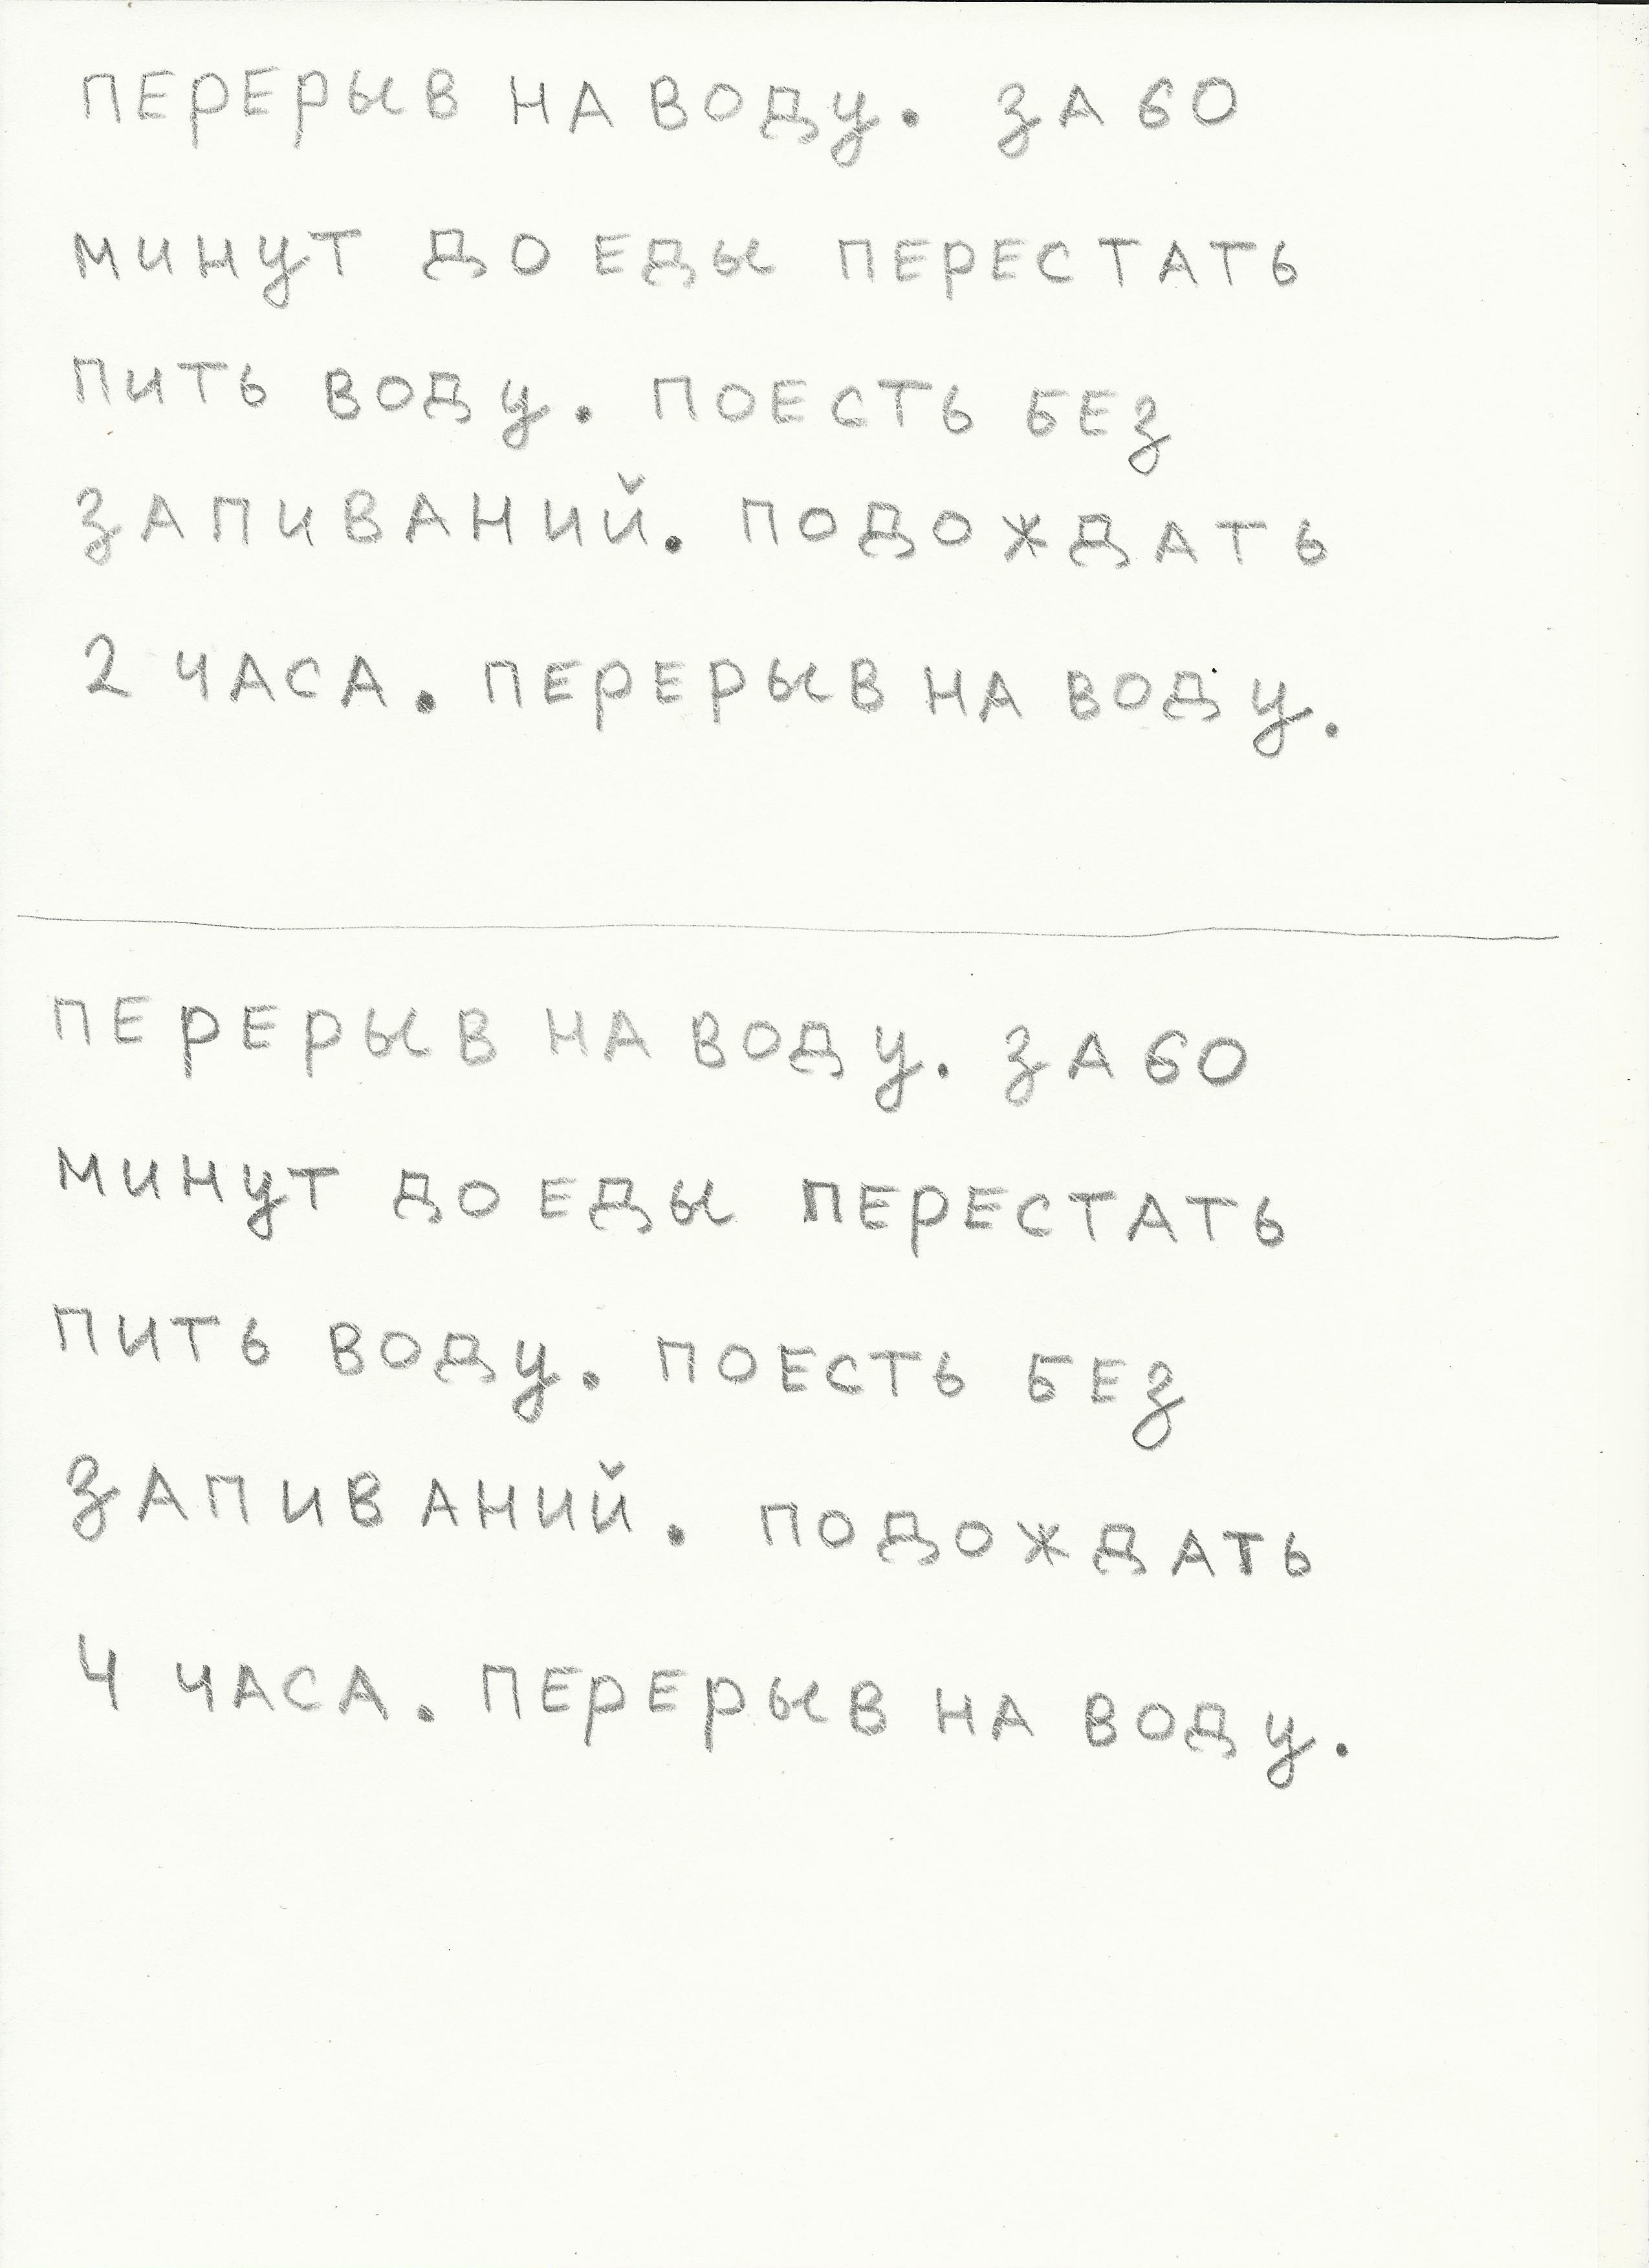 ПЕРЕРЫВ НА ВОДУ. ЗА 60
МИНУТ ДО ЕДЫ ПЕРЕСТАТЬ
ПИТЬ ВОДУ. ПОЕСТЬ БЕЗ
ЗАПИВАНИЙ. ПОДОЖДАТЬ
2 ЧАСА. ПЕРЕРЫВ НА ВОДУ.
ПЕРЕРЫВ НА ВОДУ. ЗА 60
МИНУТ ДО ЕДЫ ПЕРЕСТАТЬ
ПИТЬ ВОДУ. ПОЕСТЬ БЕЗ
ЗАПИВАНИЙ. ПОДОЖДАТЬ
4 ЧАСА. ПЕРЕРЫВ НА ВОДУ.